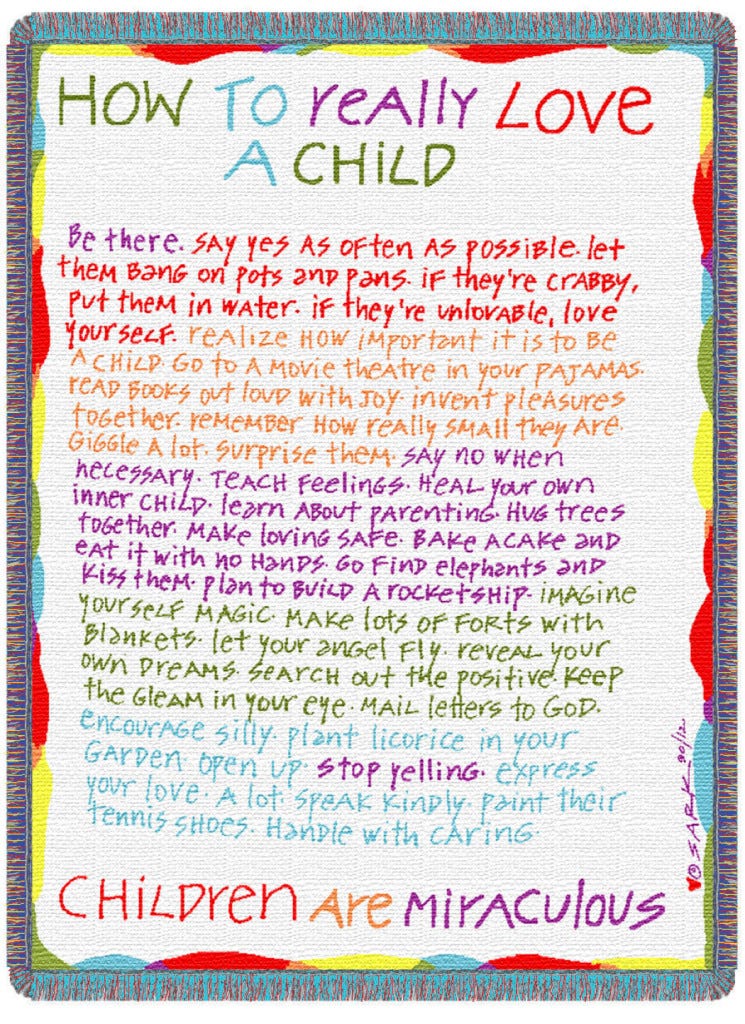 HOW TO reALLY LOVe
A CHiLD
Be there. SAY yes AS OFten AS POSSiBLe. Let
them BANG on POTS and PANS. if they're CRABBY,
PUT them in WATer. if they're unlovABLe, love
yourSeLF. reALize HOW iMPORTAnt it is to Be
A CHiLD. GO to A Movie theAtre in your PAJAMAS.
reAD BOOKS out LOUD with JOY. invent pleASUres
together. reMeMBer HOW reALLY SMALL they Are.
GiGGLe A Lot. Surprise theM. SAY no WHen
necessAry. TeACH FeeLinGS. HeAL your own
inner CHiLD. LeArn ABout PArentinG. HUG trees
toGether. MAKe lovinG SAFe. BAKe A CAKe AnD
eAt it with no HAnDS. GO FinD elephAnts AnD
Kiss theM. PLAn to BuiLD A rocKetsHip. iMAGine
yourSeLF MAGiC. MAKe Lots OF FOrts with
BLAnKets. Let your AnGeL FLY. reveAL your
own DreAMS. SeArCH out the positive. Keep
the GLeAM in your eye. MAiL Letters to GOD.
encourAGe silly. plAnt Licorice in your
GArDen. open up. Stop yeLLinG. express
your Love. A Lot. SpeAK KinDLY. pAint their
tennis SHOes. HAnDLe with CArinG.
CHiLDren Are MirACuLous
© SARK 90/12